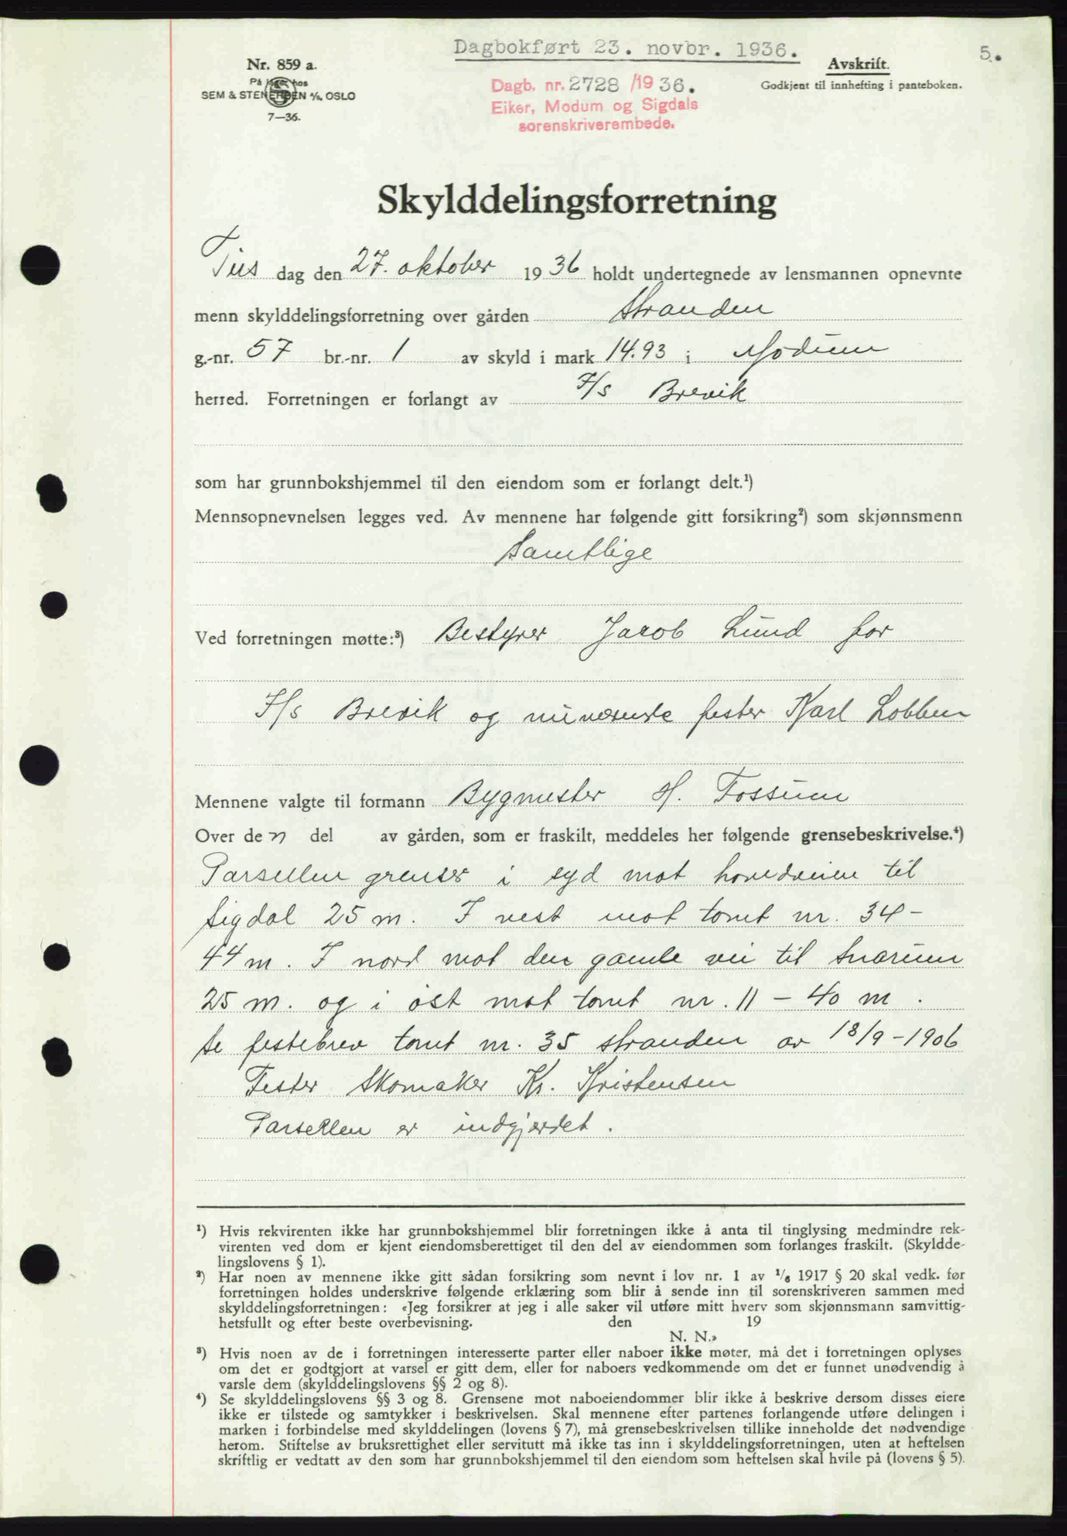 Dagbokført 23. novbr. 1936.
5.
Nr. 859 a.
På lager hos
SEM & STENERSEN A/S, OSLO
7—36.
Dagb. nr. 2728/1936.
Eiker, Modum og Sigdals
sorenskriverembede.
Avskrift.
Godkjent til innhefting i panteboken.
Skylddelingsforretning
Tirs dag den 27. oktober 1936 holdt undertegnede av lensmannen opnevnte
menn skylddelingsforretning over gården Stranden
g.-nr. 57 br.-nr. 1 av skyld i mark 14.93 i Modum
herred. Forretningen er forlangt av A/s Brevik
som har grunnbokshjemmel til den eiendom som er forlangt delt.¹)
Mennsopnevnelsen legges ved. Av mennene har følgende gitt forsikring²) som skjønnsmenn
Samtlige
Ved forretningen møtte:³) Bestyrer Jacob Lund for
A/s Brevik og nuværende fester Karl Lobben
Mennene valgte til formann Bygmester H. Fossum
Over de n del av gården, som er fraskilt, meddeles her følgende grensebeskrivelse.⁴)
Parsellen grenser i syd mot hovedveien til
Sigdal 25 m. I vest mot tomt nr. 34 -
44 m. I nord mot den gamle vei til Snarum
25 m. og i øst mot tomt nr. 11 - 40 m.
Se festebrev tomt nr. 35 Stranden av 18/9-1906
Fester Skomaker Kr. Kristensen
Parsellen er indgjerdet.
¹) Hvis rekvirenten ikke har grunnbokshjemmel blir forretningen ikke å anta til tinglysing medmindre rek-
virenten ved dom er kjent eiendomsberettiget til den del av eiendommen som forlanges fraskilt. (Skyldde-
lingslovens § 1).
²) Har noen av mennene ikke gitt sådan forsikring som nevnt i lov nr. 1 av ¹/₆ 1917 § 20 skal vedk. før
forretningen holdes underskrive følgende erklæring som blir å sende inn til sorenskriveren sammen med
skylddelingsforretningen: «Jeg forsikrer at jeg i alle saker vil utføre mitt hverv som skjønnsmann samvittig-
hetsfullt og efter beste overbevisning. den 19
N. N.»
³) Hvis noen av de i forretningen interesserte parter eller naboer ikke møter, må det i forretningen oplyses
om det er godtgjort at varsel er gitt dem, eller for naboers vedkommende om det er funnet unødvendig å
varsle dem (skylddelingslovens §§ 2 og 8).
⁴) Se skylddelingslovens §§ 3 og 8. Grensene mot naboeiendommer blir ikke å beskrive dersom disses eiere
ikke er tilstede og samtykker i beskrivelsen. Skal mennene efter partenes forlangende utføre delingen i
marken i forbindelse med skylddelingen (lovens § 7), må grensebeskrivelsen tillike inneholde det nødvendige
herom. Stiftelse av bruksrettighet eller servitutt må ikke tas inn i skylddelingsforretningen, uten at heftelsen
skriftlig er vedtatt av den som har grunnbokshjemmel til den eiendom som heftelsen skal hvile på (lovens § 5).